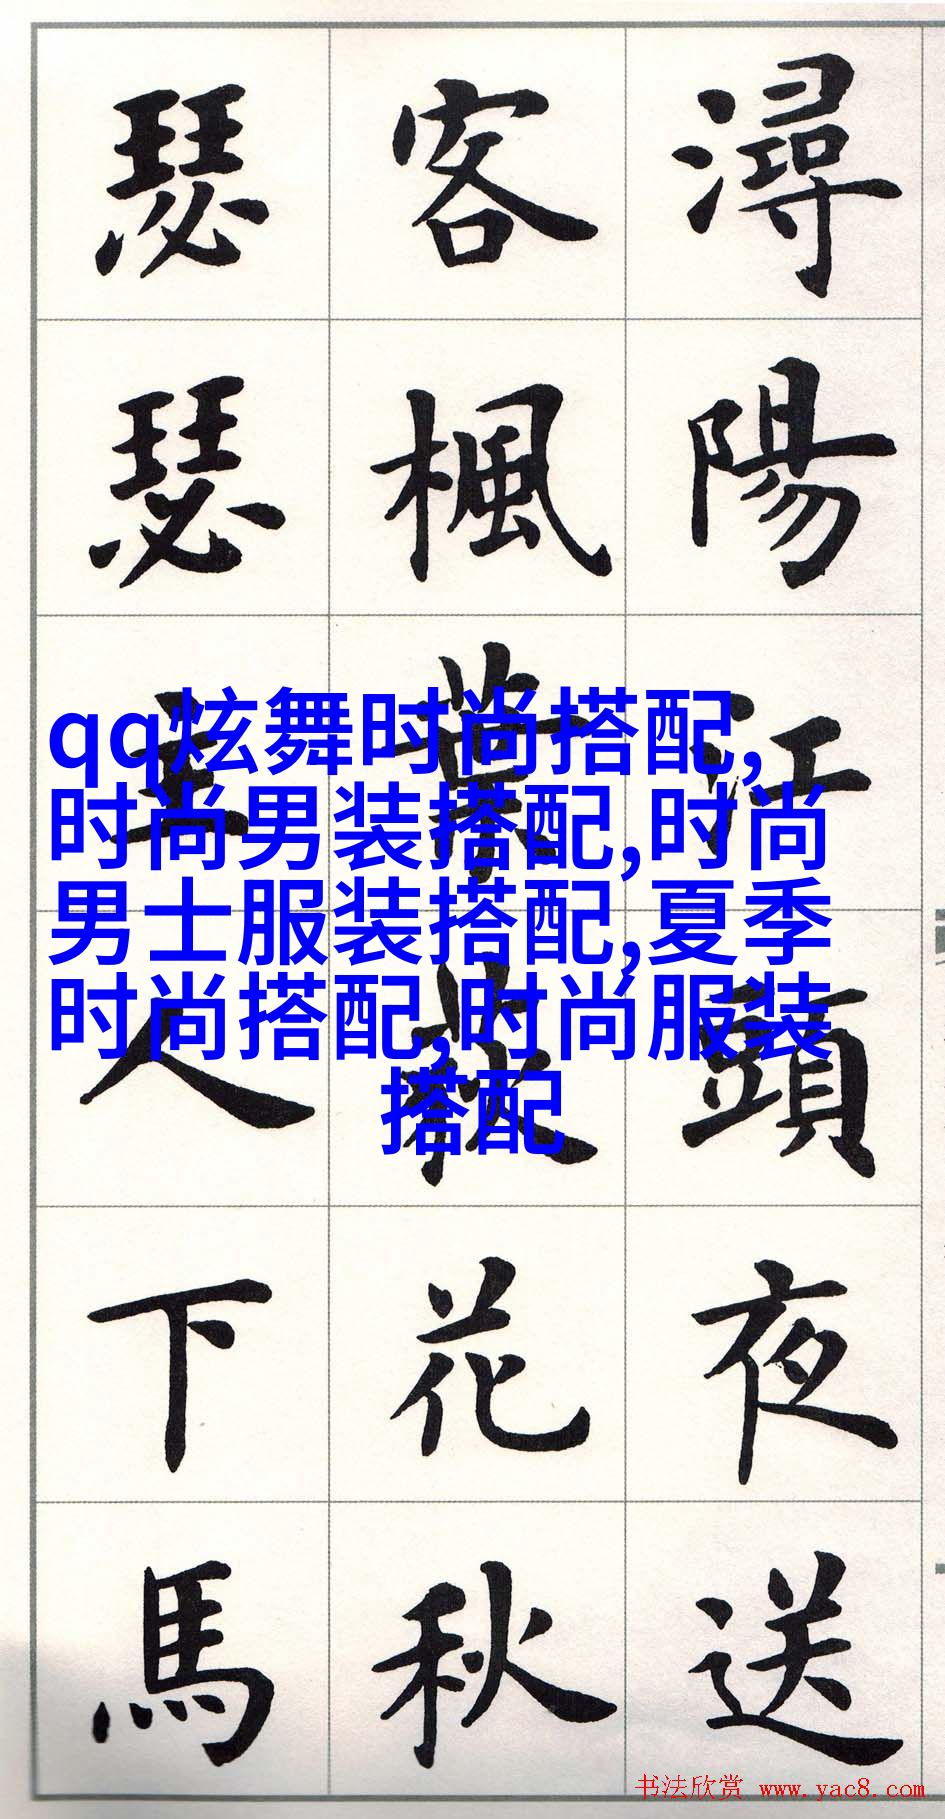 潯陽江頭夜送
客楓葉荻花秋
瑟瑟主人下馬
qq炫舞时尚搭配,
时尚男装搭配,时尚
男士服装搭配,夏季
时尚搭配,时尚服装
搭配
书法欣赏 www.yac8.com